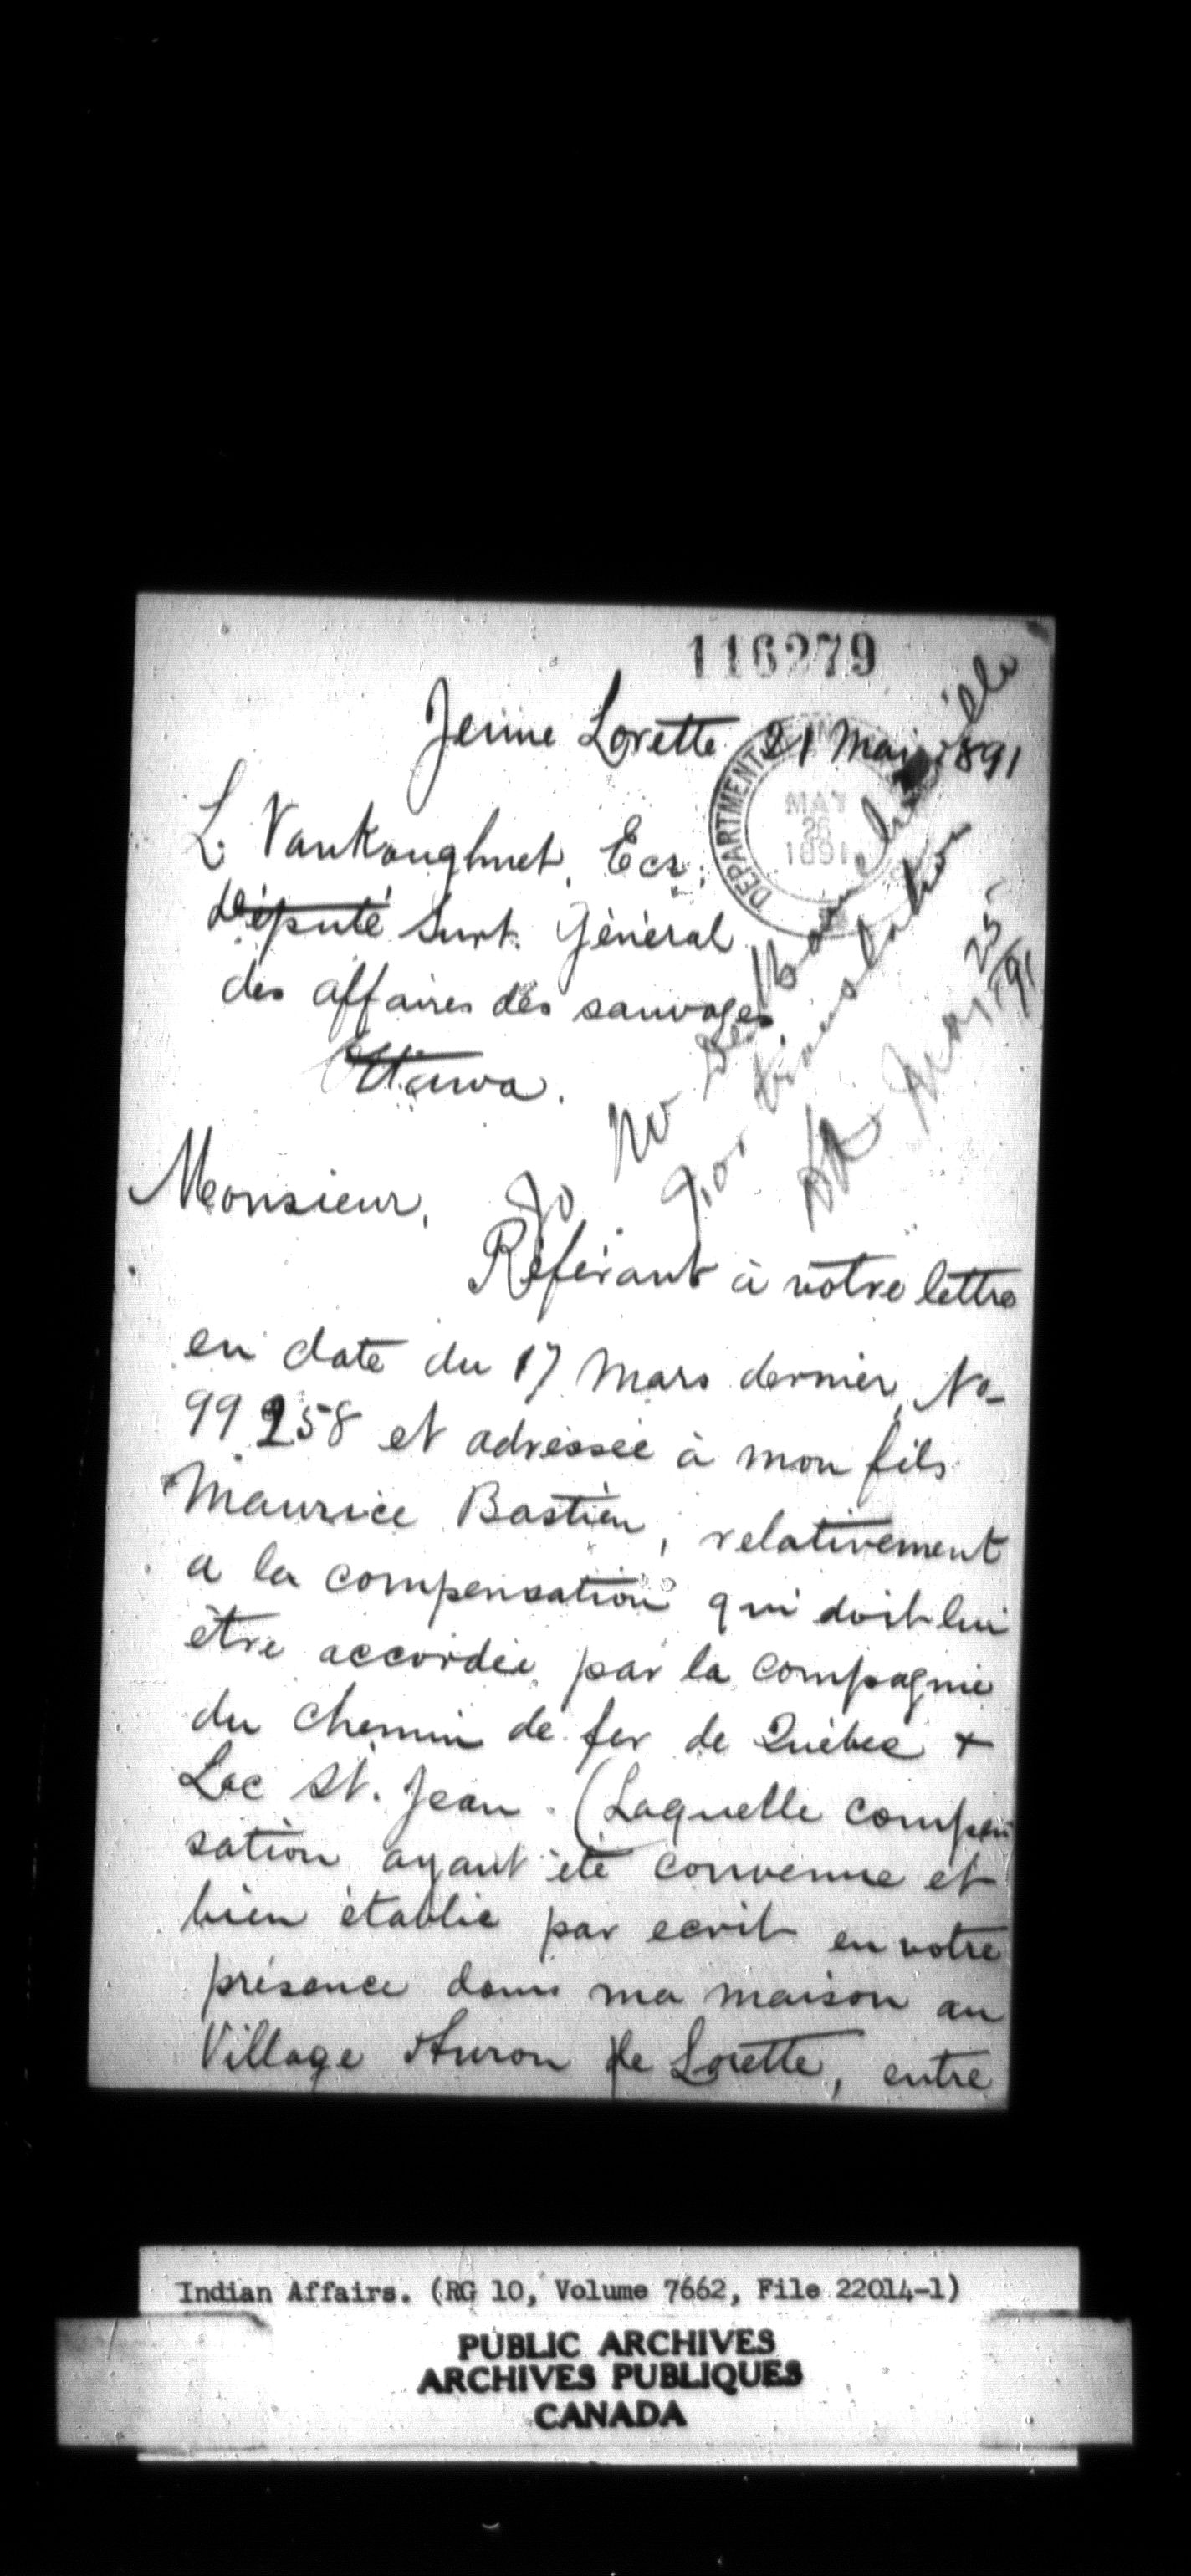 116279
Jeune Lorette 21 Mai 1891
DEPARTMENT
MAY
26
1891
L. VanKoughnet, Ecr.
Député Surt. Général
des affaires des sauvages
Ottawa.
To Mr De Boucherville
For translation
May 25/91
Monsieur,
Référant à votre lettre
en date du 17 Mars dernier, No
99258 et adressée à mon fils
Maurice Bastien, relativement
a la compensation qui doit lui
être accordée par la compagnie
du chemin de fer de Québec +
Lac St. Jean. (Laquelle compen
sation ayant été convenue et
bien établie par ecrit en votre
présence dans ma maison au
Village Huron de Lorette, entre
Indian Affairs. (RG 10, Volume 7662, File 22014-1)
PUBLIC ARCHIVES
ARCHIVES PUBLIQUES
CANADA